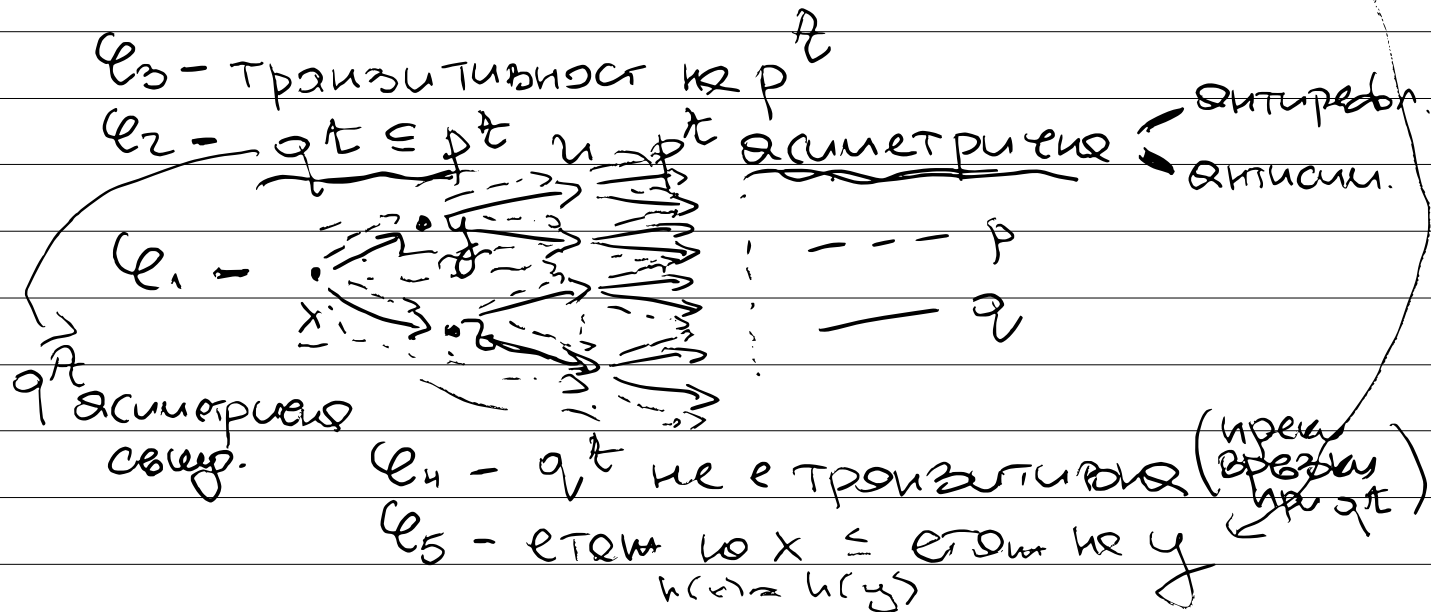 φ₃ - транзитивност на p^A
φ₂ - q^A ⊆ p^A и p^A асиметрична
антирефл.
антисим.
φ₁ -
y
x
z
--- p
— q
q^A асиметрична
също.
φ₄ - q^A не е транзитивна (преки
врезки
при q^A)
φ₅ - етаж на x ≤ етаж на y
h(x) = h(y)